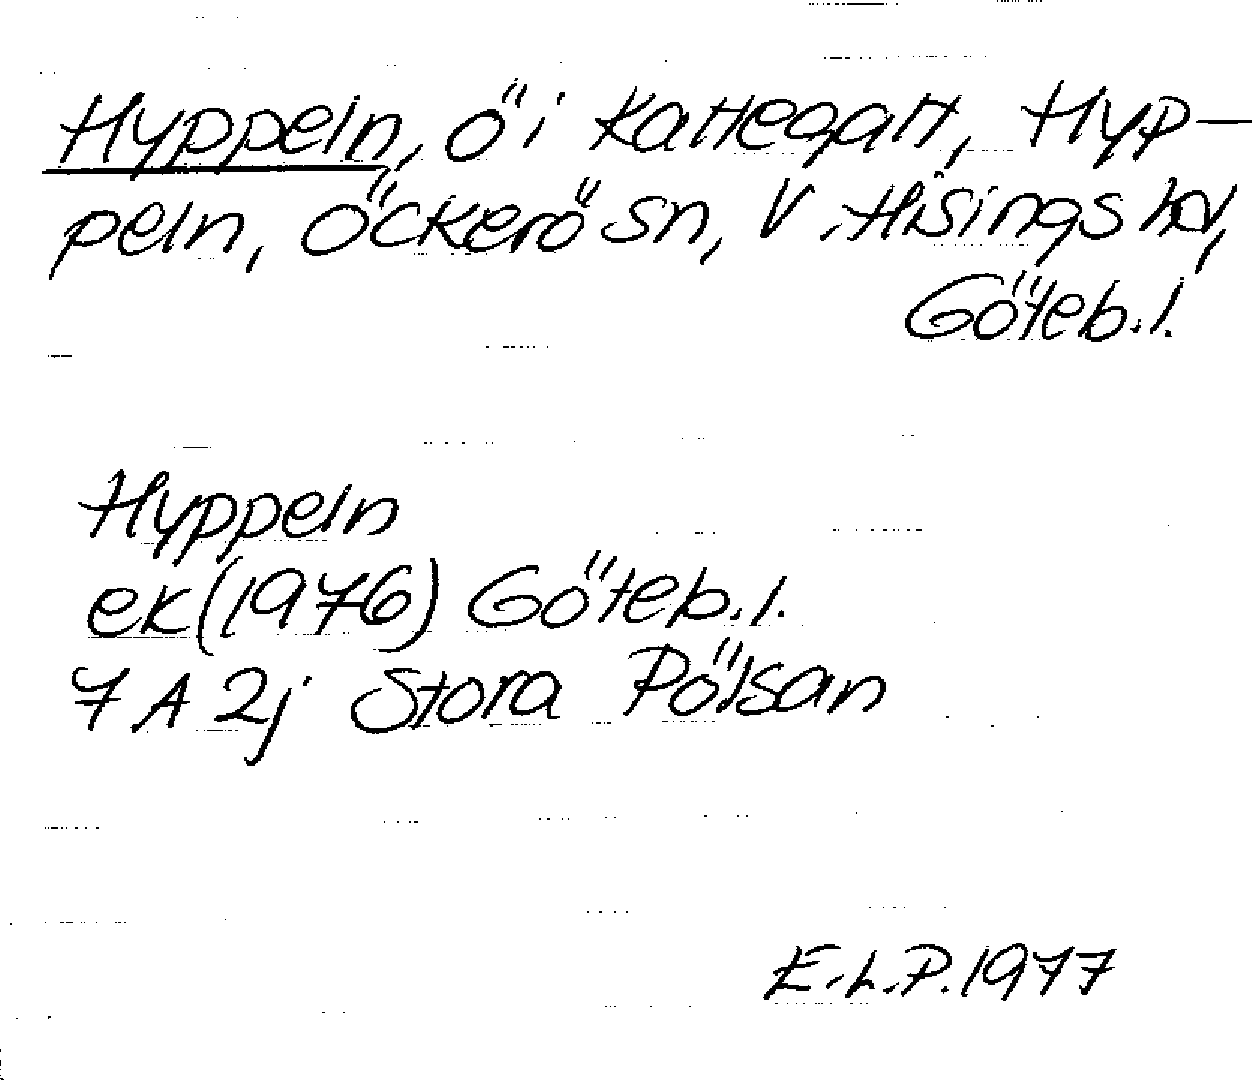 Hyppeln, ö i Kattegatt, Hyp-
peln, Öckerö sn, V. Hisings hd,
Göteb. l.
Hyppeln
ek (1976) Göteb. l.
7 A 2j Stora Pölsan
E.L.P. 1977